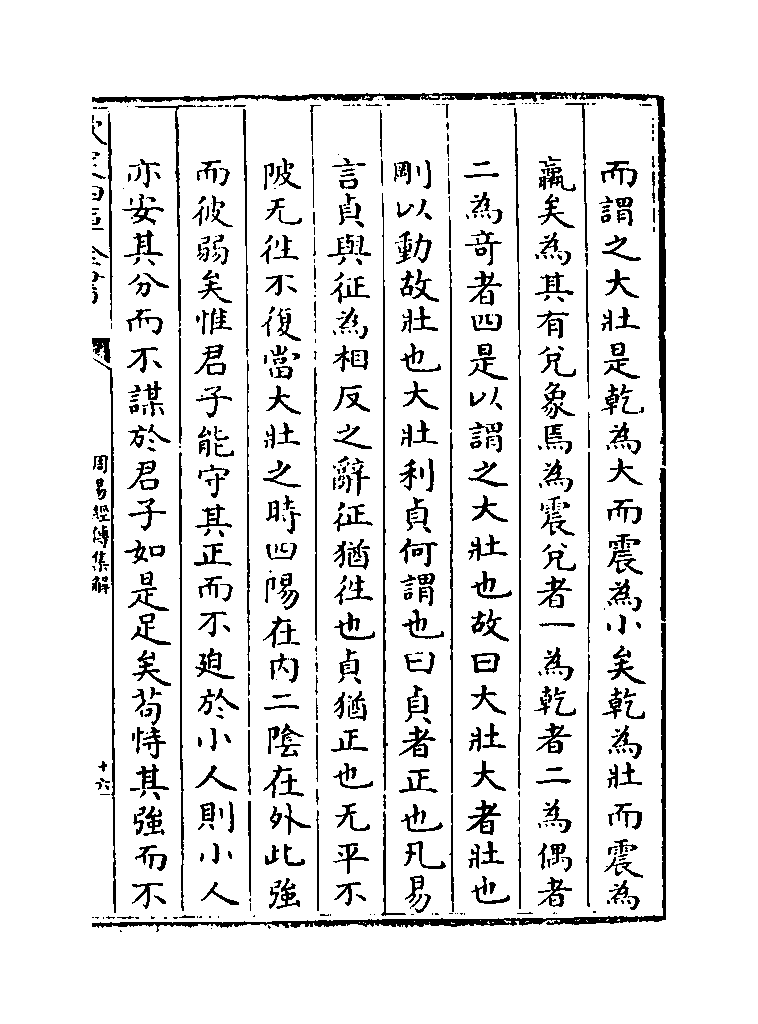 而謂之大壯是乾為大而震為小矣乾為壯而震為
羸矣為其有兌象焉為震兌者一為乾者二為偶者
二為竒者四是以謂之大壯也故曰大壯大者壯也
剛以動故壯也大壯利貞何謂也曰貞者正也凡易
言貞與征為相反之辭征猶徃也貞猶正也无平不
陂无徃不復當大壯之時四陽在内二陰在外此強
而彼弱矣惟君子能守其正而不迫於小人則小人
亦安其分而不謀於君子如是足矣苟恃其強而不
周易經傳集解
十六